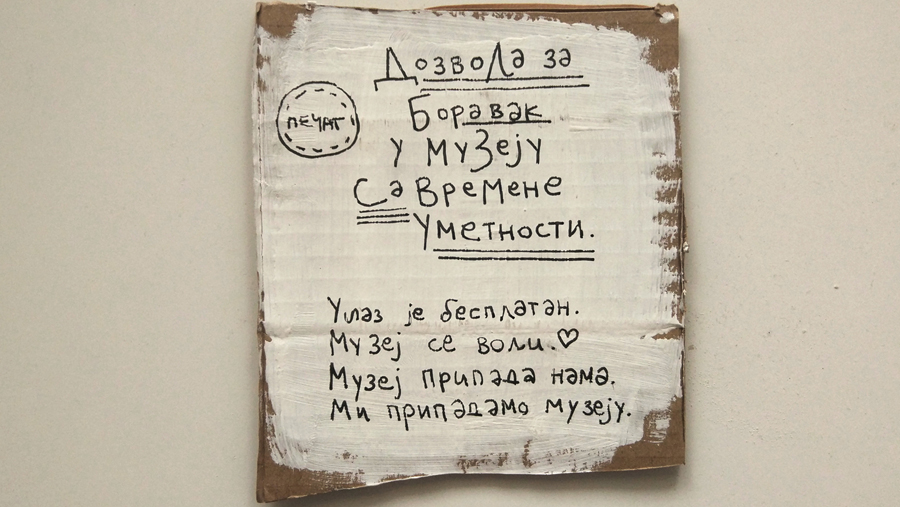 Дозвола за
ПЕЧАТ
Боравак
у музеју
Савремене
Уметности.
Улаз је бесплатан.
Музеј се воли.♡
Музеј припада нама.
Ми припадамо музеју.